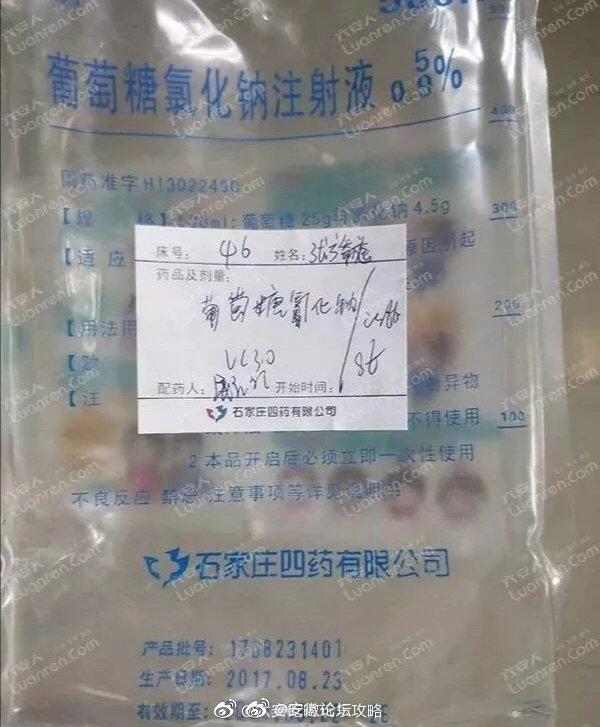 葡萄糖氯化钠注射液 5% 0.9%
400
国药准字H13022450
【规格】500ml:葡萄糖25g与氯化钠4.5g
300
【适应 原因引起
床号: 46 姓名:
药品及剂量:
葡萄糖氯化钠
200
【用法用
VC3.0
配药人: 开始时间:
石家庄四药有限公司
【注
异物
不得使用
100
2 本品开启后必须立即一次性使用
不良反应 禁忌 注意事项等详见说明书
石家庄四药有限公司
产品批号: 1708231401
生产日期: 2017.08.23
有效期至:
@安徽论坛攻略
六安人
Luanren.com